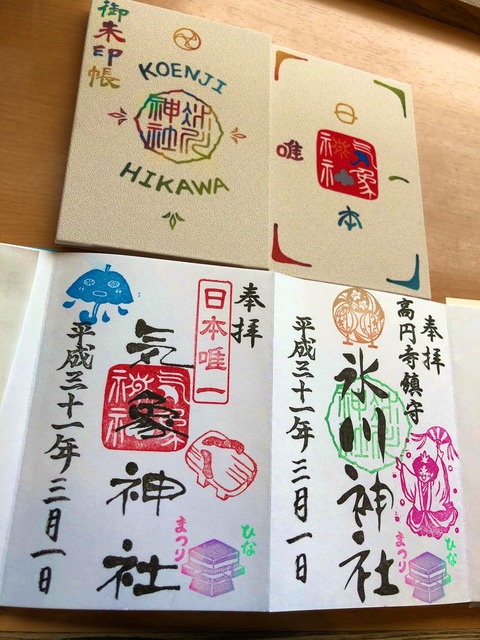 御朱印帳
KOENJI
氷川
神社
HIKAWA
日
本
唯
一
気象
神社
奉拝
日本唯一
気象神社
気象
神社
平成三十一年三月一日
ひな
まつり
奉拝
高円寺鎮守
氷川神社
平成三十一年三月一日
ひな
まつり